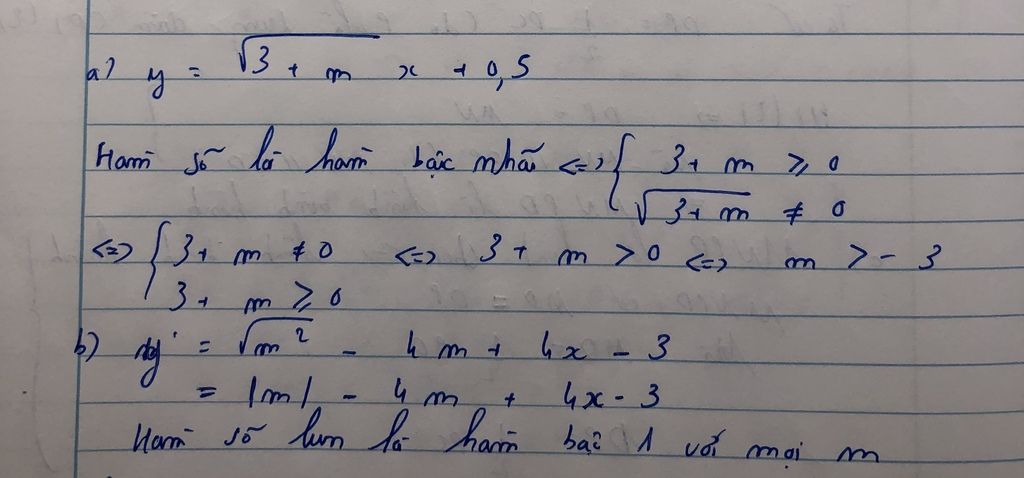 a) y = √(3 + m) x + 0,5
Hàm số là hàm bậc nhất <=> { 3 + m ≥ 0
√(3 + m) ≠ 0
<=> { 3 + m ≠ 0 <=> 3 + m > 0 <=> m > - 3
3 + m ≥ 0
b) y = √(m²) - 4m + 4x - 3
= |m| - 4m + 4x - 3
Hàm số luôn là hàm bậc 1 với mọi m